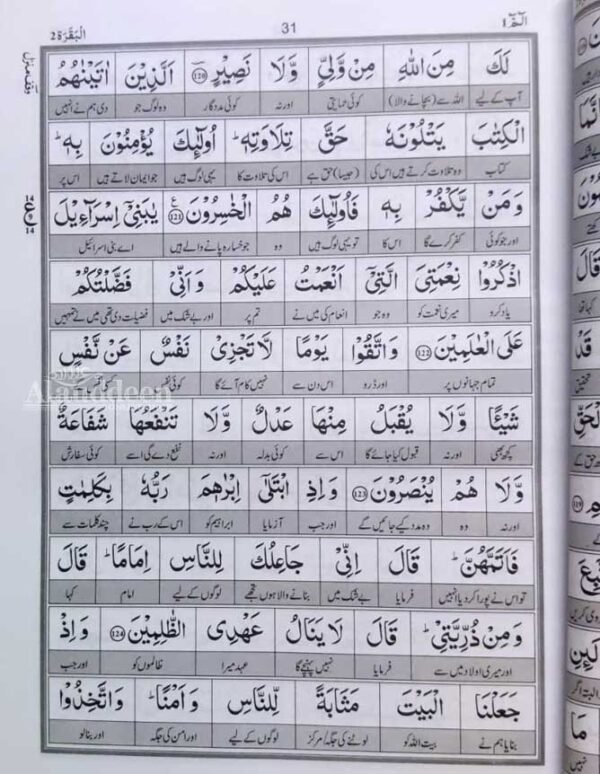 الٓمّٓ ١
31
البقرة ٢
لَكَ مِنَ اللّٰهِ مِنْ وَّلِيٍّ وَّلَا نَصِيْرٍ ﴿120﴾ اَلَّذِيْنَ اٰتَيْنٰهُمُ
آپ کے لیے اللہ سے (بچانے والا) کوئی حمایتی اور نہ کوئی مددگار وہ لوگ جو دی ہم نے انہیں
الْكِتٰبَ يَتْلُوْنَهٗ حَقَّ تِلَاوَتِهٖ ؕ اُولٰٓئِكَ يُؤْمِنُوْنَ بِهٖ ؕ
کتاب وہ تلاوت کرتے ہیں اس کی (جیسا) حق ہے اس کی تلاوت کا یہی لوگ ہیں جو ایمان لاتے ہیں اس پر
وَمَنْ يَّكْفُرْ بِهٖ فَاُولٰٓئِكَ هُمُ الْخٰسِرُوْنَ ﴿121﴾ يٰبَنِيْۤ اِسْرَآءِيْلَ
اور جو کوئی کفر کرے گا اس کا تو یہی لوگ ہیں وہ جو خسارہ پانے والے ہیں اے بنی اسرائیل
اذْكُرُوْا نِعْمَتِيَ الَّتِيْۤ اَنْعَمْتُ عَلَيْكُمْ وَاَنِّيْ فَضَّلْتُكُمْ
یاد کرو میری نعمت کو وہ جو انعام کی میں نے تم پر اور بے شک میں فضیلت دی تھی میں نے تمہیں
عَلَى الْعٰلَمِيْنَ ﴿122﴾ وَاتَّقُوْا يَوْمًا لَّا تَجْزِيْ نَفْسٌ عَنْ نَّفْسٍ
تمام جہانوں پر اور ڈرو اس دن سے نہیں کام آئے گا کوئی نفس کسی نفس
شَيْـًٔا وَّلَا يُقْبَلُ مِنْهَا عَدْلٌ وَّلَا تَنْفَعُهَا شَفَاعَةٌ
کچھ بھی اور نہ قبول کیا جائے گا اس سے کوئی بدلہ اور نہ نفع دے گی اسے کوئی سفارش
وَّلَا هُمْ يُنْصَرُوْنَ ﴿123﴾ وَاِذِ ابْتَلٰۤى اِبْرٰهٖمَ رَبُّهٗ بِكَلِمٰتٍ
اور نہ وہ وہ مدد کیے جائیں گے اور جب آزمایا ابراہیم کو اس کے رب نے چند کلمات سے
فَاَتَمَّهُنَّ ؕ قَالَ اِنِّيْ جَاعِلُكَ لِلنَّاسِ اِمَامًا ؕ قَالَ
تو اس نے پورا کر دیا انہیں فرمایا بے شک میں بنانے والا ہوں تجھے لوگوں کے لیے امام کہا
وَمِنْ ذُرِّيَّتِيْ ؕ قَالَ لَا يَنَالُ عَهْدِي الظّٰلِمِيْنَ ﴿124﴾ وَاِذْ
اور میری اولاد میں سے فرمایا نہیں پہنچے گا عہد میرا ظالموں کو اور جب
جَعَلْنَا الْبَيْتَ مَثَابَةً لِّلنَّاسِ وَاَمْنًا ؕ وَاتَّخِذُوْا
بنایا ہم نے بیت اللہ کو لوٹنے کی جگہ/مرکز لوگوں کے لیے اور امن کی جگہ اور بنا لو
Alamodeen